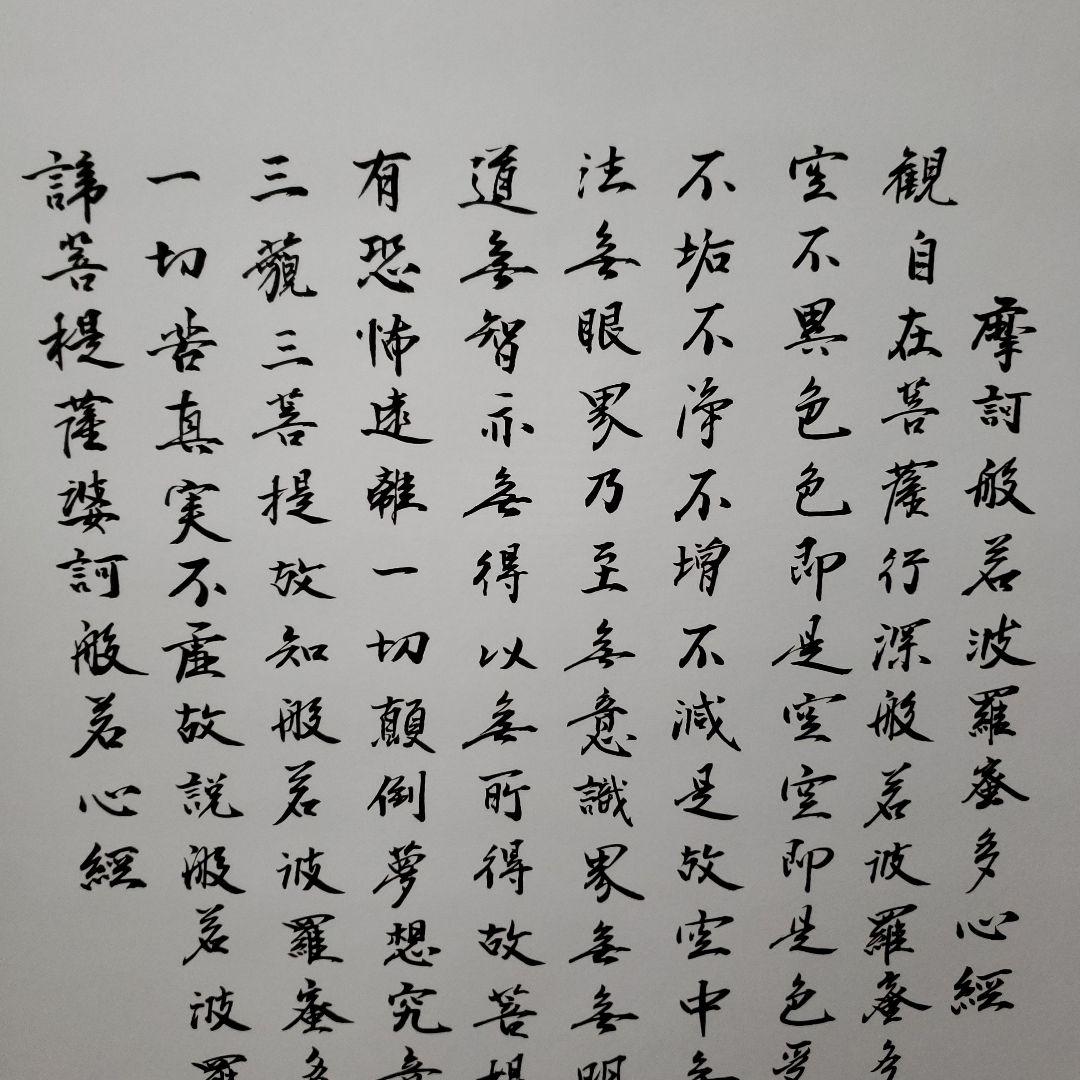 摩訶般若波羅蜜多心經
観自在菩薩行深般若波羅蜜多
空不異色色即是空空即是色受
不垢不浄不増不減是故空中無
法無眼界乃至無意識界無無明
道無智亦無得以無所得故菩提
有恐怖遠離一切顛倒夢想究竟
三藐三菩提故知般若波羅蜜多
一切苦真実不虚故説般若波羅
諦菩提薩婆訶般若心經